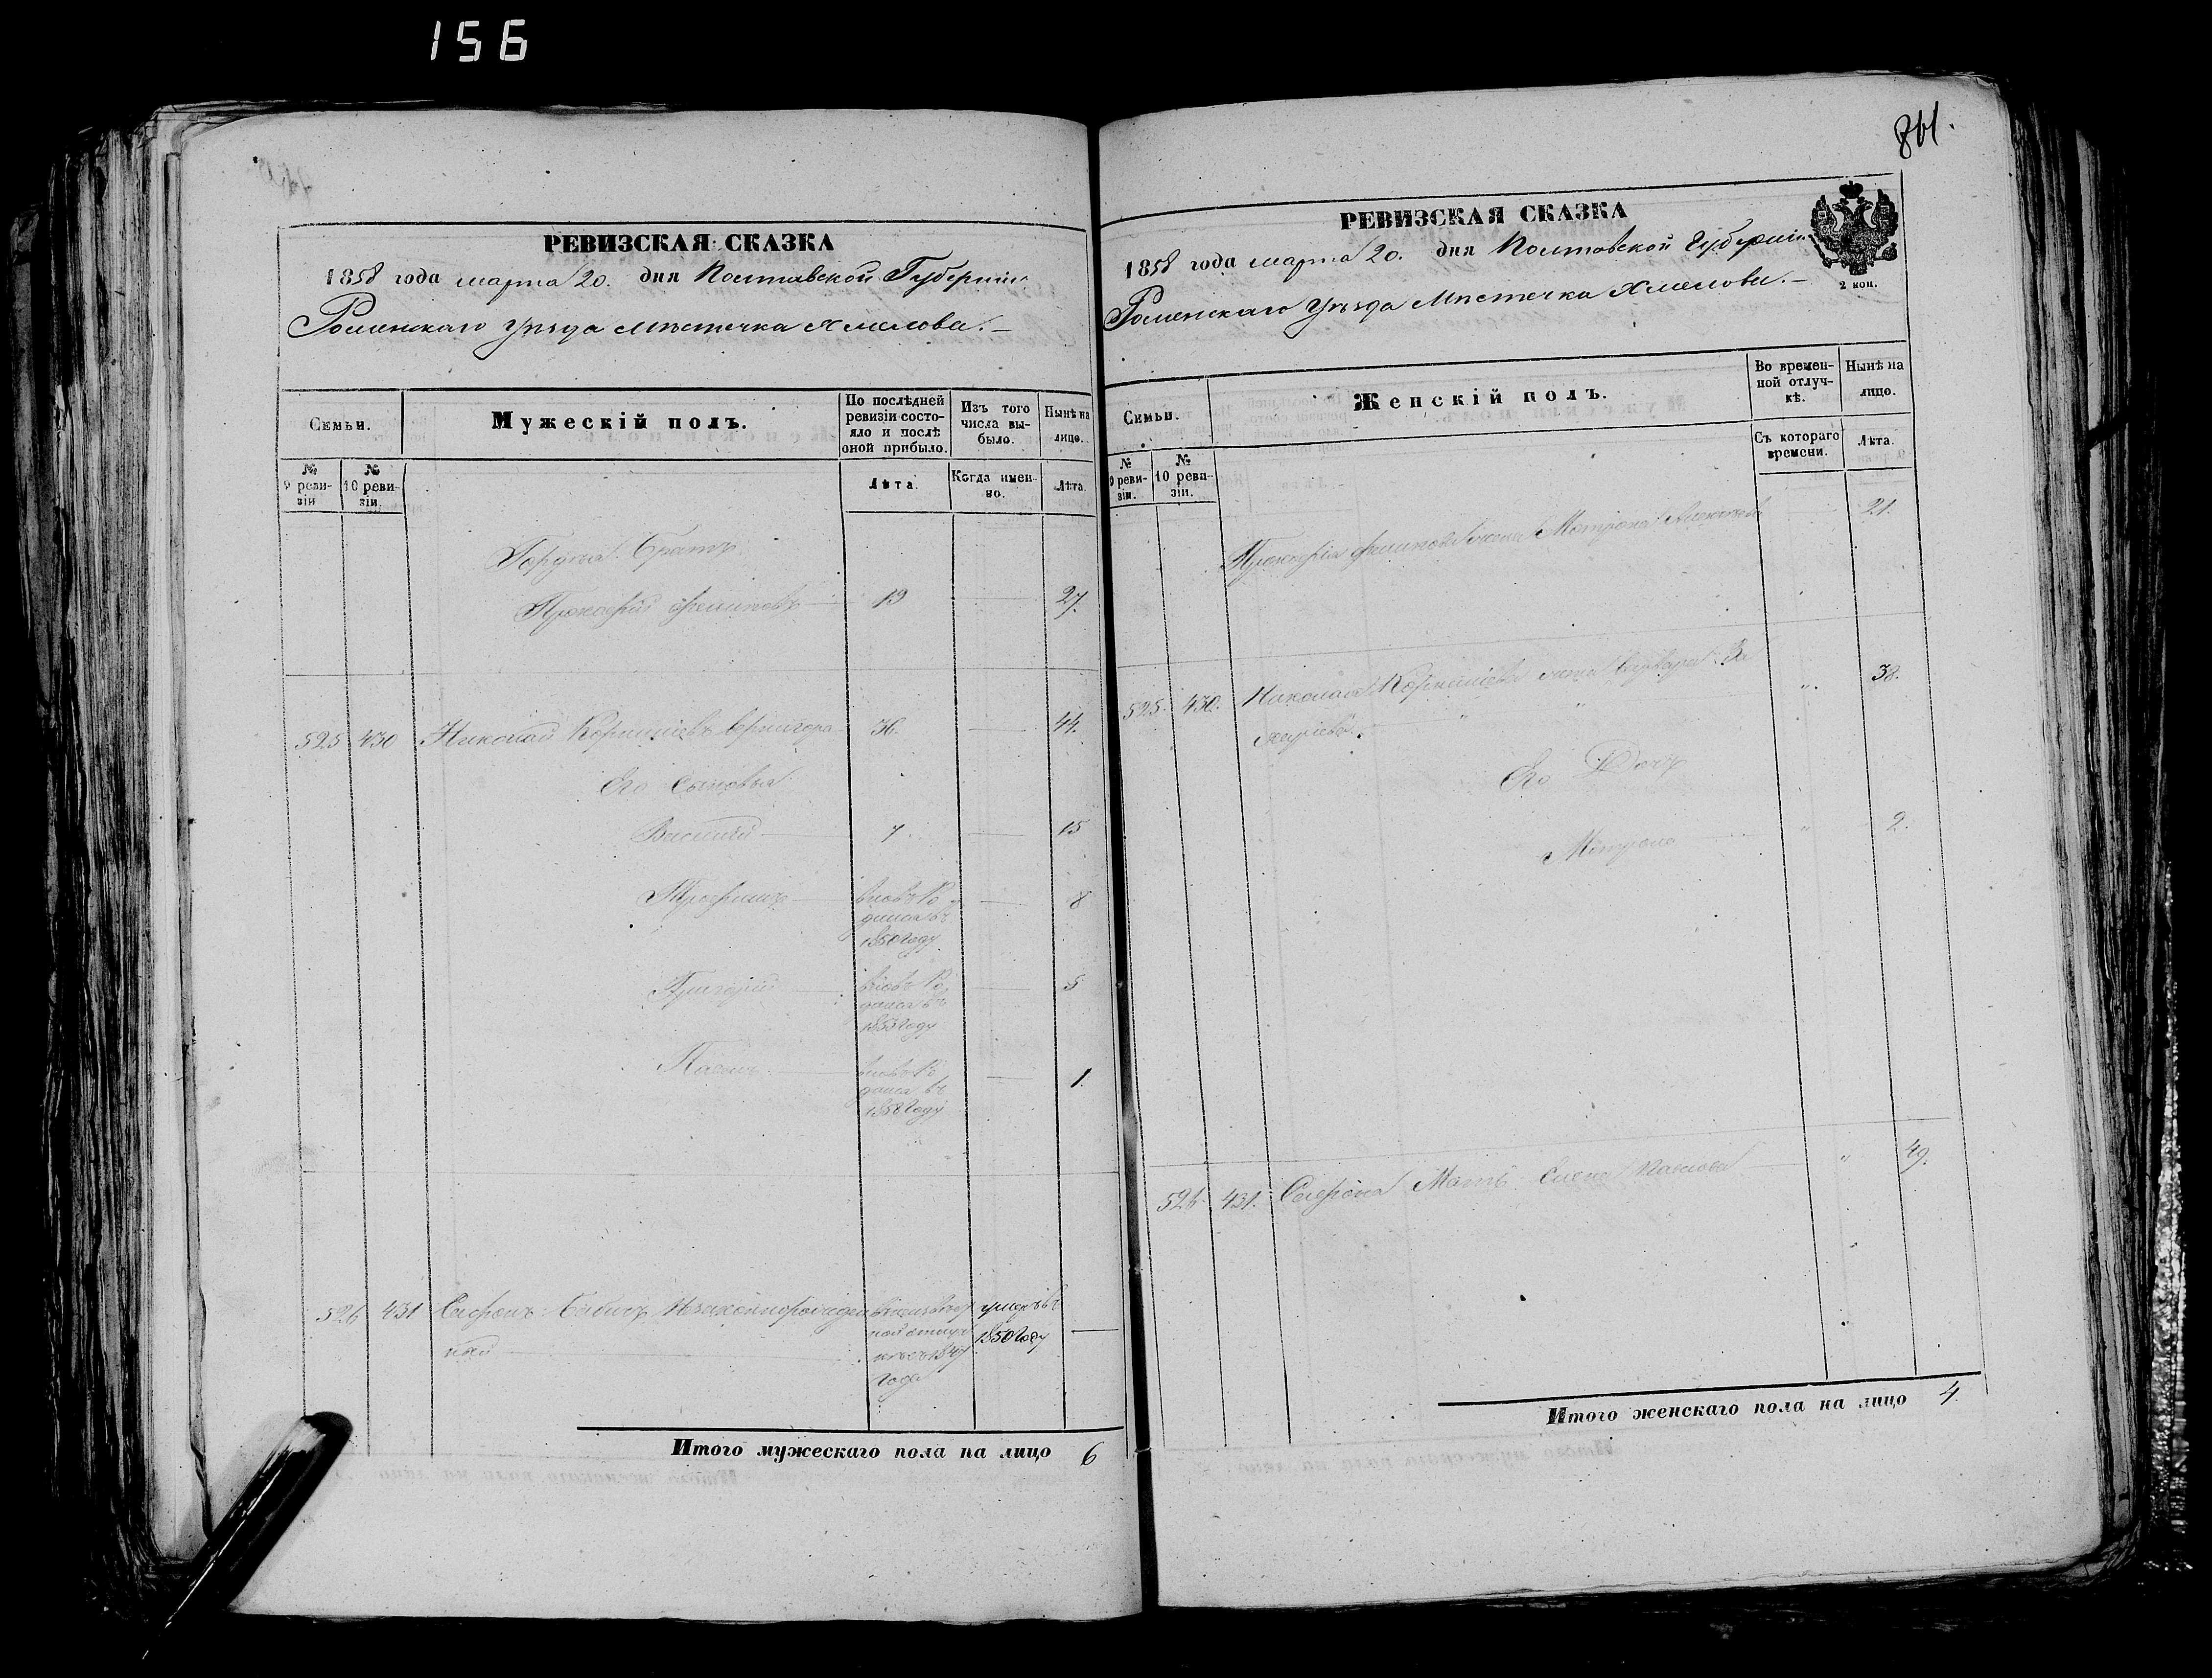 156
РЕВИЗСКАЯ СКАЗКА
1858 года марта 20. дня Полтавской Губерніи
Роменскаго Уѣзда Мѣстечка Хмелова. —
Семьи.
Мужескій полъ.
По послѣдней ревизіи состояло и послѣ оной прибыло.
Изъ того числа выбыло.
Нынѣ на лицо.
№ 9 ревизіи
№ 10 ревизіи.
Лѣта.
Когда именно.
Лѣта.
Гордѣя Братъ
Прокофій Филиповъ 19 — 27.
525 430 Николай Корніиіевъ Вернигора 36. — 44.
Его Сыновья
Василій 7 — 15
Трофимъ вновь Родился въ 1850 Году — 8
Григорій вновь Родился въ 1853 Году — 5
Павелъ вновь Родился въ 1858 Году — 1.
526 431 Сафронъ Незаконнорожден
ный
года
умеръ въ
1850 Году —
Итого мужескаго пола на лицо 6
861.
РЕВИЗСКАЯ СКАЗКА
1858 года марта 20. дня Полтавской Губерніи
Роменскаго Уѣзда Мѣстечка Хмелова. —
2 коп.
Семьи.
Женскій полъ.
Во временной отлучкѣ.
Нынѣ на лицо.
№ 9 ревизіи.
№ 10 ревизіи.
Съ котораго времени.
Лѣта.
Прокофія Филипова жена Мотрона 21.
525. 430. Николая жена Варвара За
харіева „ 38.
Его Дочь
Мотрона „ 2.
526 431. Сафрона Мать Елена Павлова „ 49.
Итого женскаго пола на лицо 4